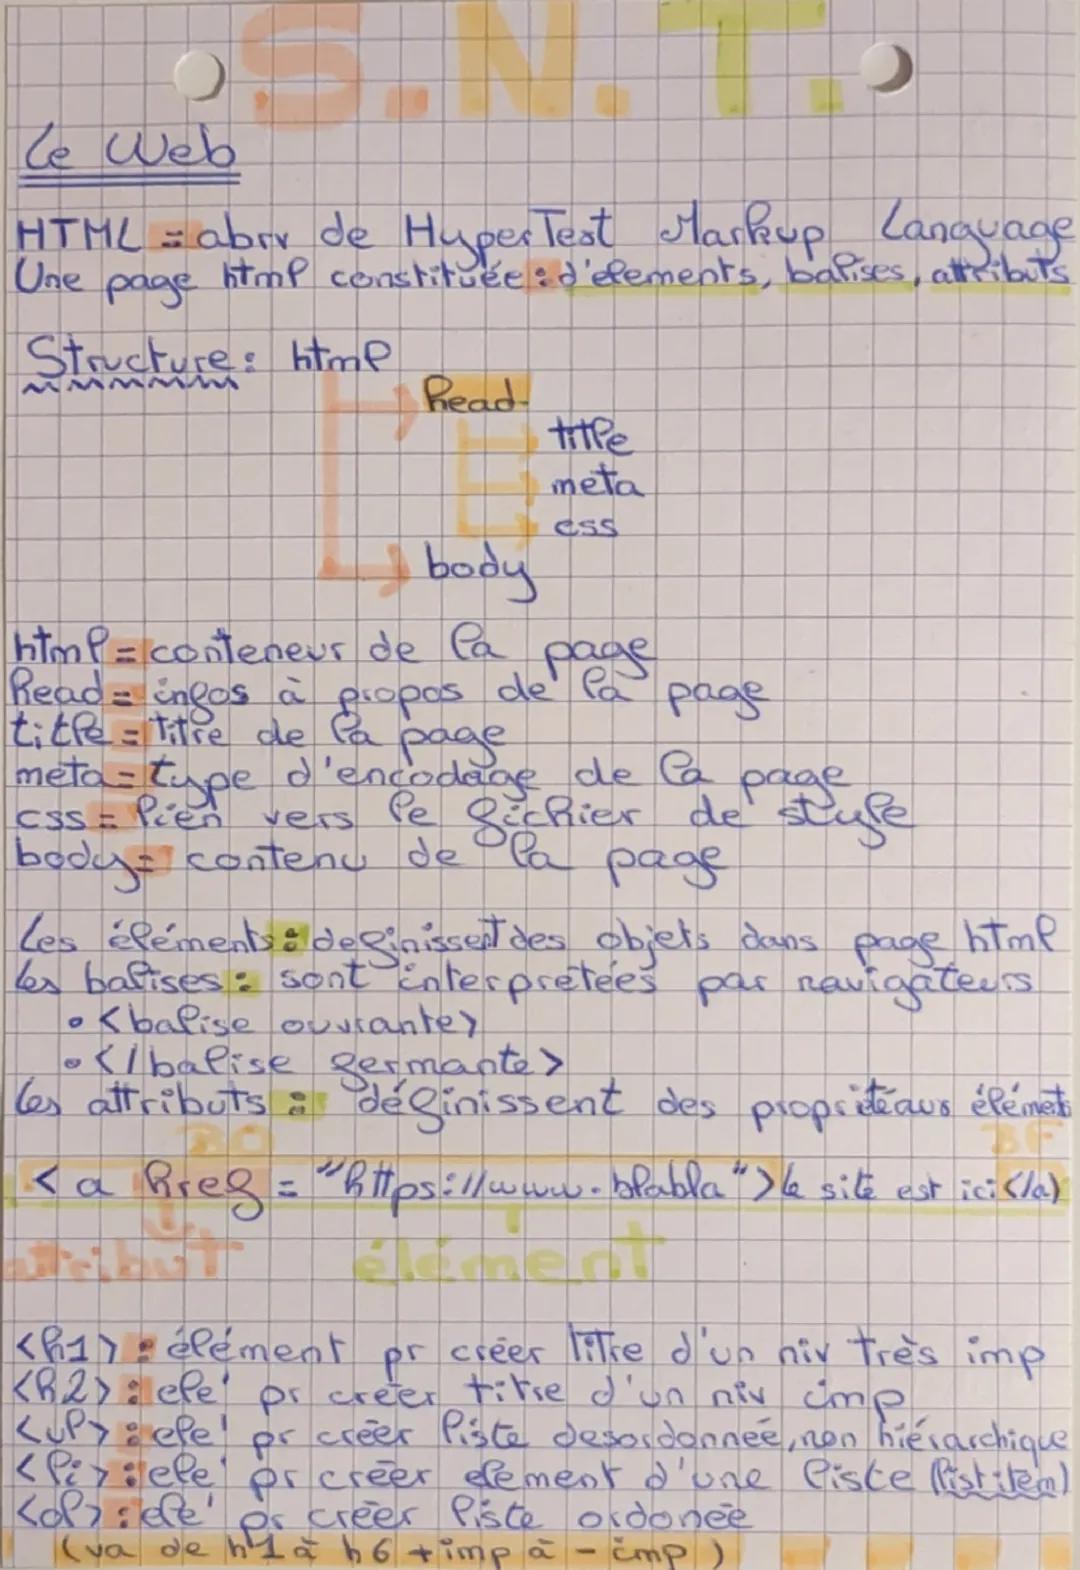 S.N.T.
Le Web
HTML = abrv de HyperTest Markup Language
Une page html constituée : d'elements, balises, attributs
Structure : html
head
title
meta
css
body
html = conteneur de la page
head = infos à propos de la page
title = titre de la page
meta = type d'encodage de la page
css = lien vers le fichier de style
body = contenu de la page
Les éléments : definissent des objets dans page html
les balises : sont interprétées par navigateurs
• <balise ouvrante>
• </balise fermante>
les attributs : définissent des propriété aux élémets
BO BF
<a href = "https://www.blabla">le site est ici</a>
attribut élément
<h1> : élément pr créer titre d'un niv très imp
<h2> : ele' pr creer titre d'un niv imp
<ul> : ele' pr créer liste desordonneé, non hiérarchique
<li> : ele' pr créer element d'une liste (list item)
<ol> : ele' pr créer liste ordonée
(va de h1 à h6 + imp à - imp)